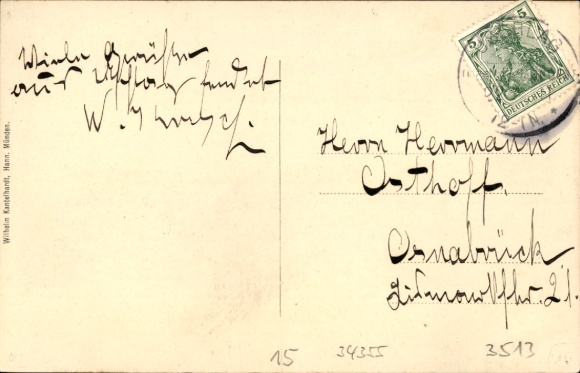 Viele Grüße
aus sendet
W.
Wilhelm Kantelhardt, Hann. Münden.
5 5
DEUTSCHES REICH
Herrn Herrmann
Osthoff.
Osnabrück,
21.
15
34355
3513